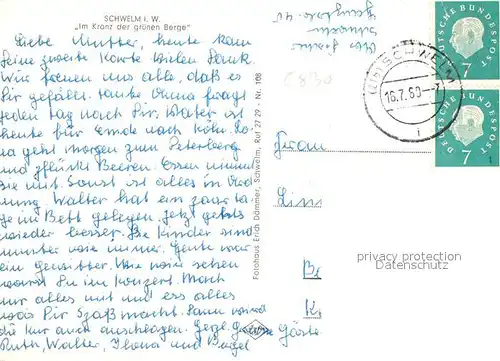 SCHWELM i. W.
„Im Kranz der grünen Berge"
Liebe Mutter, heute kam
Deine zweite Karte. Vielen Dank.
Wir freuen uns alle, daß es
Dir gefällt. Tante Anna fragt
jeden Tag nach Dir. Vater ist
heute für Ende nach Köln.
geht morgen zum Petersberg
und pflückt Beeren. Essen nimmt
sie mit. Sonst ist alles in Ord
nung. Walter hat ein paar Ta
ge im Bett gelegen. Jetzt geht's
wieder besser. Die Kinder sind
munter wie immer. Heute war
ein Gewitter. Wie wir sehen
warst Du im Konzert. Mach
nur alles mit und ess alles
was Dir Spaß macht. Dann wird
die Kur auch anschlagen. Herzl. Grüße
Ruth, Walter, Ilona und
Fotohaus Erich Dämmer, Schwelm, Ruf 27 29 - Nr. 108
Schwelm
SCHWELM
16.7.60
i
DEUTSCHE BUNDESPOST
7
DEUTSCHE BUNDESPOST
7
Frau
Gäste
privacy protection
Datenschutz